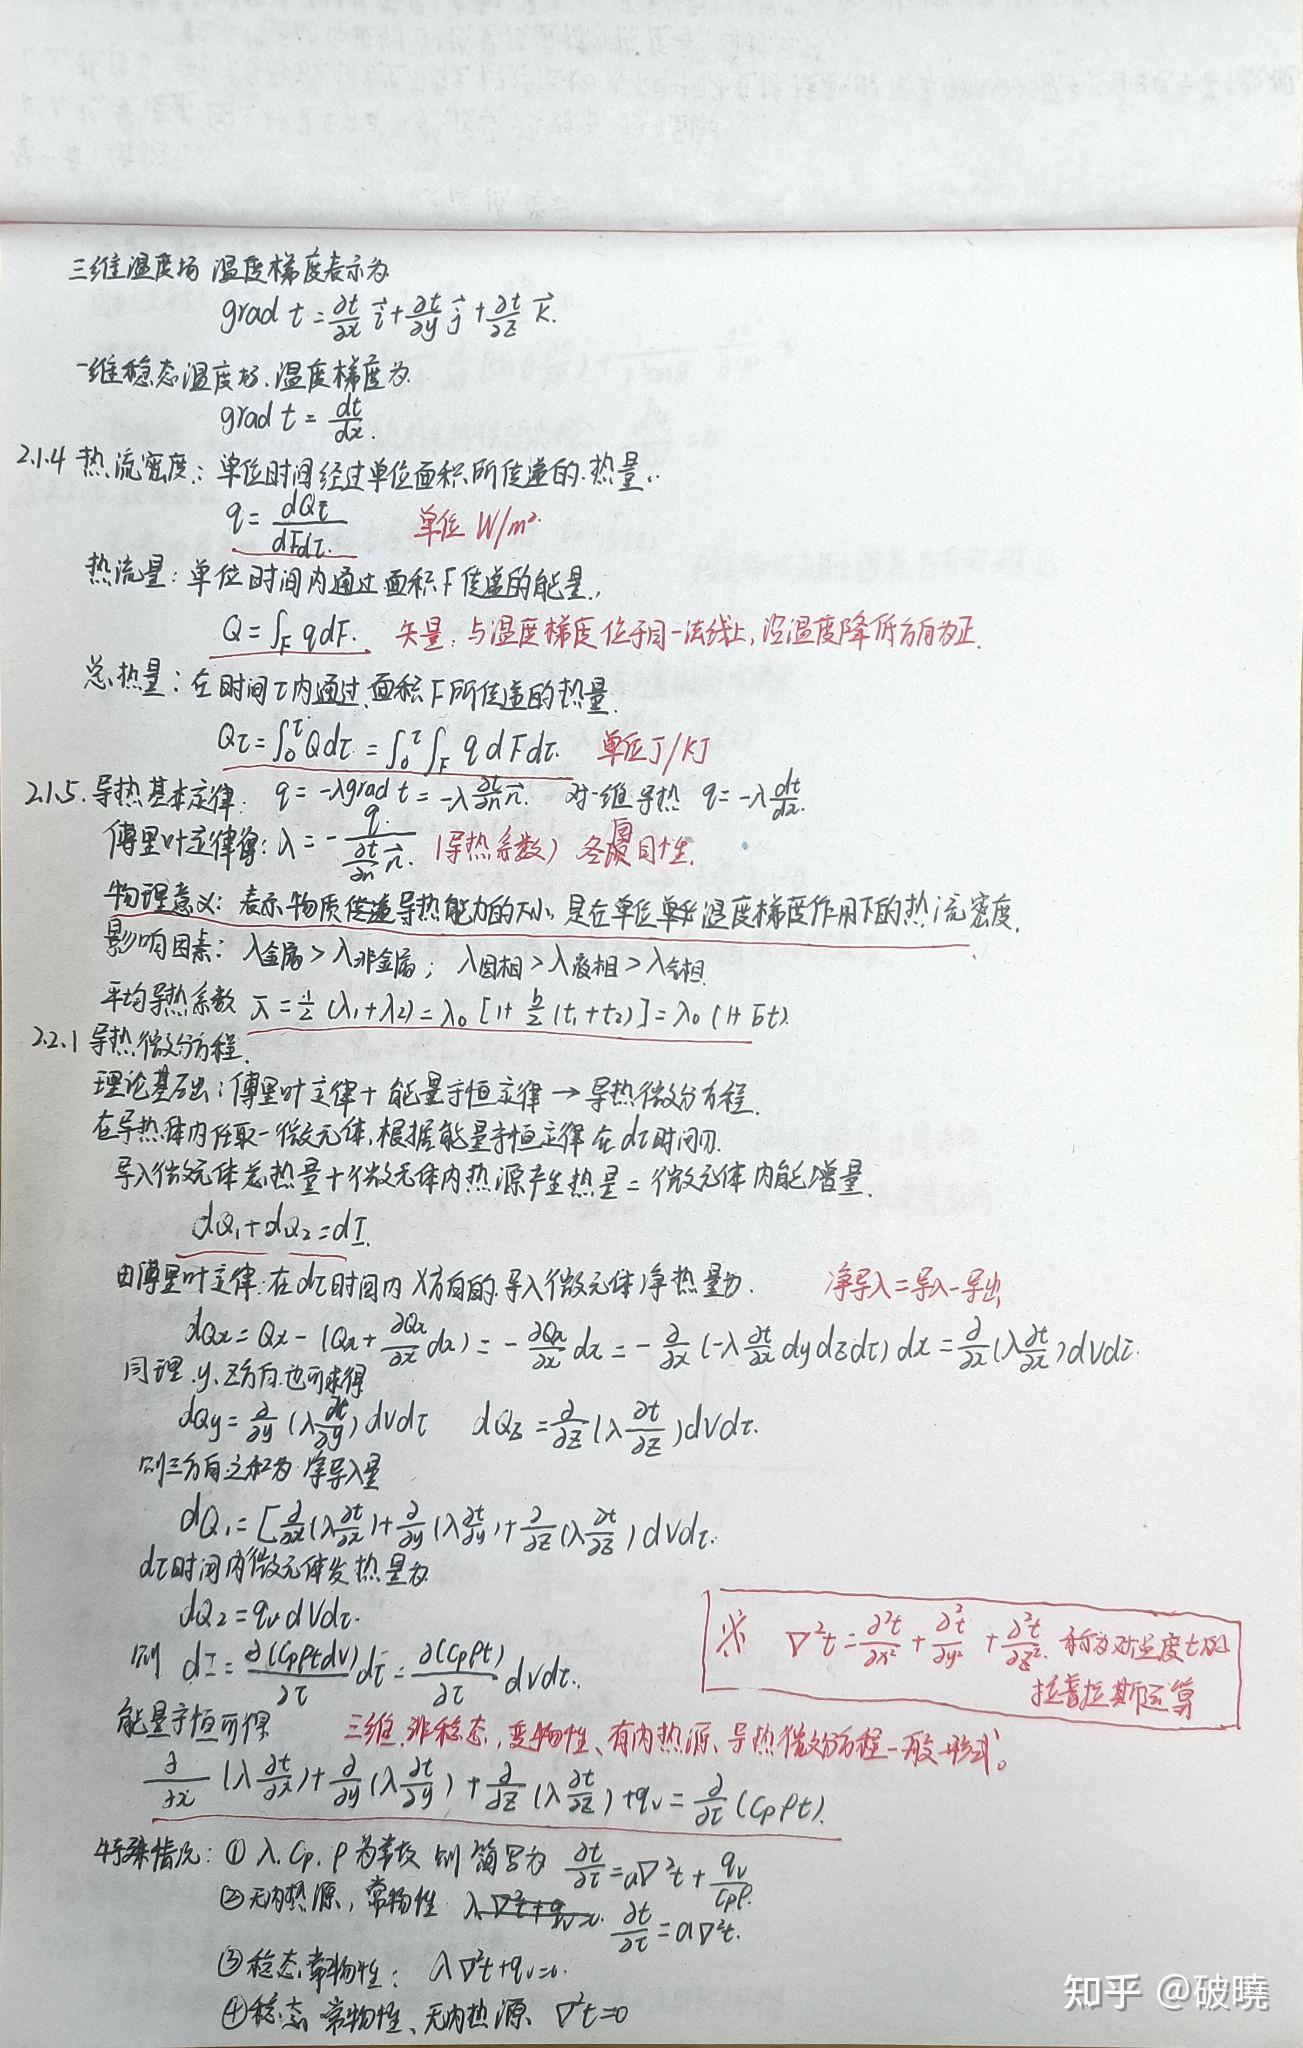 三维温度场 温度梯度表示为
grad t = ∂t/∂x i⃗ + ∂t/∂y j⃗ + ∂t/∂z k⃗.
一维稳态温度场.温度梯度为.
grad t = dt/dx.
2.1.4 热流密度: 单位时间经过单位面积所传递的热量.
q = dQτ/dFdτ. 单位 W/m².
热流量: 单位时间内通过面积F传递的能量.
Q = ∫F qdF. 矢量: 与温度梯度位于同一法线上, 沿温度降低方向为正.
总热量: 在时间τ内通过面积F所传递的热量.
Qτ = ∫₀^τ Qdτ = ∫₀^τ ∫F q dFdτ. 单位J/KJ
2.1.5. 导热基本定律. q = -λgrad t = -λ ∂t/∂n n⃗. 对一维导热 q = -λ dt/dx.
傅里叶定律得: λ = - q/(∂t/∂n n⃗). (导热系数) 各向同性.
物理意义: 表示物质传递导热能力的大小, 是在单位温度梯度作用下的热流密度.
影响因素: λ金属 > λ非金属; λ固相 > λ液相 > λ气相.
平均导热系数 λ̄ = ½ (λ₁+λ₂) = λ₀ [1+ b/2 (t₁+t₂)] = λ₀ (1+ bt̄).
2.2.1 导热微分方程.
理论基础: 傅里叶定律 + 能量守恒定律 → 导热微分方程.
在导热体内任取一微元体, 根据能量守恒定律在dτ时间内.
导入微元体总热量 + 微元体内热源产生热量 = 微元体内能增量.
dQ₁+dQ₂=dI.
由傅里叶定律.在dτ时间内 X方向的导入微元体净热量为. 净导入=导入-导出
dQx = Qx - (Qx + ∂Qx/∂x dx) = - ∂Qx/∂x dx = - ∂/∂x (-λ ∂t/∂x dydzdτ) dx = ∂/∂x (λ ∂t/∂x) dVdτ.
同理.y、z方向也可求得
dQy = ∂/∂y (λ ∂t/∂y) dVdτ dQz = ∂/∂z (λ ∂t/∂z) dVdτ.
则三方向之和为净导入量
dQ₁ = [∂/∂x (λ ∂t/∂x) + ∂/∂y (λ ∂t/∂y) + ∂/∂z (λ ∂t/∂z) dVdτ.
dτ时间内微元体发热量为
dQ₂ = qv dVdτ.
则 dI = ∂(Cpρtdv)/∂τ dτ = ∂(Cpρt)/∂τ dVdτ.
※ ∇²t = ∂²t/∂x² + ∂²t/∂y² + ∂²t/∂z². 称为对温度t的
拉普拉斯运算
能量守恒可得 三维、非稳态, 变物性、有内热源、导热微分方程一般形式。
∂/∂x (λ ∂t/∂x) + ∂/∂y (λ ∂t/∂y) + ∂/∂z (λ ∂t/∂z) + qv = ∂/∂τ (Cpρt).
特殊情况: ① λ. Cp. ρ 为常数 则简写为 ∂t/∂τ = a∇²t + qv/Cpρ.
②无内热源, 常物性 ∂t/∂τ = a∇²t.
③稳态常物性: λ∇²t+qv=0.
④稳态、常物性、无内热源、∇²t=0
知乎 @破曉